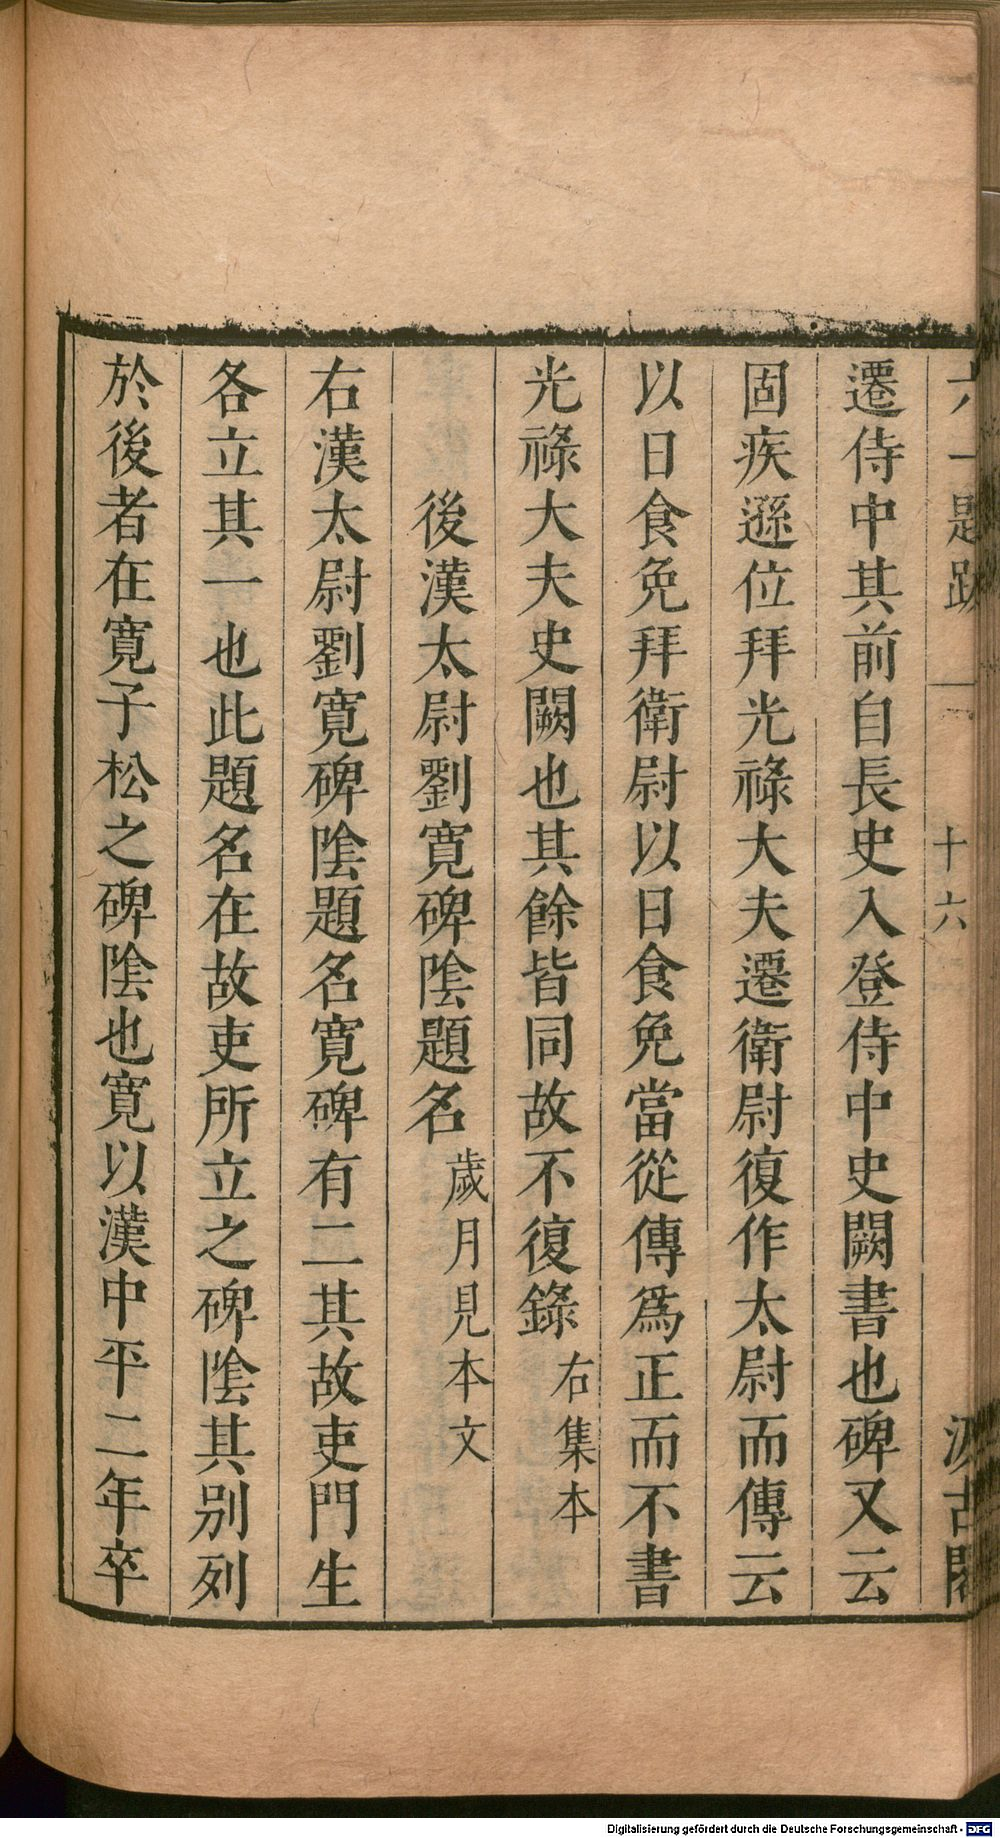 六一題跋 十六 汲古閣
遷侍中其前自長史入登侍中史闕書也碑又云
固疾遜位拜光祿大夫遷衛尉復作太尉而傳云
以日食免拜衛尉以日食免當從傳爲正而不書
光祿大夫史闕也其餘皆同故不復錄右集本
後漢太尉劉寬碑陰題名歲月見本文
右漢太尉劉寬碑陰題名寬碑有二其故吏門生
各立其一也此題名在故吏所立之碑陰其別列
於後者在寬子松之碑陰也寬以漢中平二年卒
Digitalisierung gefördert durch die Deutsche Forschungsgemeinschaft - DFG